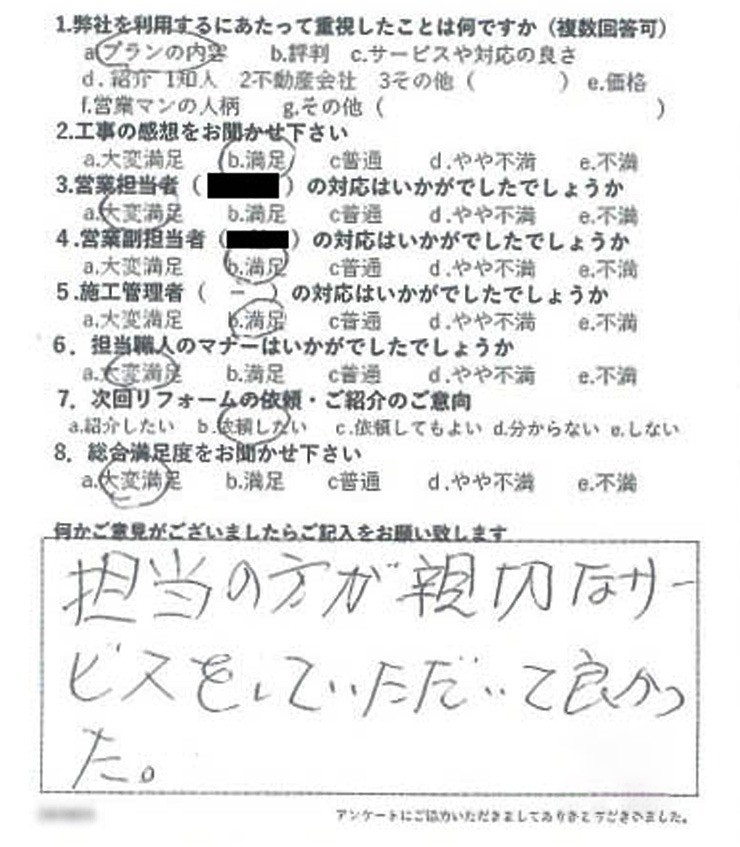 1.弊社を利用するにあたって重視したことは何ですか（複数回答可）
a プランの内容 b.評判 c.サービスや対応の良さ
d. 紹介 1知人 2不動産会社 3その他（ ） e.価格
f.営業マンの人柄 g.その他（ ）
2.工事の感想をお聞かせ下さい
a.大変満足 b.満足 c普通 d.やや不満 e.不満
3.営業担当者（ ）の対応はいかがでしたでしょうか
a.大変満足 b.満足 c普通 d.やや不満 e.不満
4.営業副担当者（ ）の対応はいかがでしたでしょうか
a.大変満足 b.満足 c普通 d.やや不満 e.不満
5.施工管理者（ － ）の対応はいかがでしたでしょうか
a.大変満足 b.満足 c普通 d.やや不満 e.不満
6．担当職人のマナーはいかがでしたでしょうか
a.大変満足 b.満足 c普通 d.やや不満 e.不満
7．次回リフォームの依頼・ご紹介のご意向
a.紹介したい b.依頼したい c.依頼してもよい d.分からない e.しない
8．総合満足度をお聞かせ下さい
a.大変満足 b.満足 c普通 d.やや不満 e.不満
何かご意見がございましたらご記入をお願い致します
担当の方が親切なサー
ビスをしていただいて良かっ
た。
アンケートにご協力いただきましてありがとうございました。